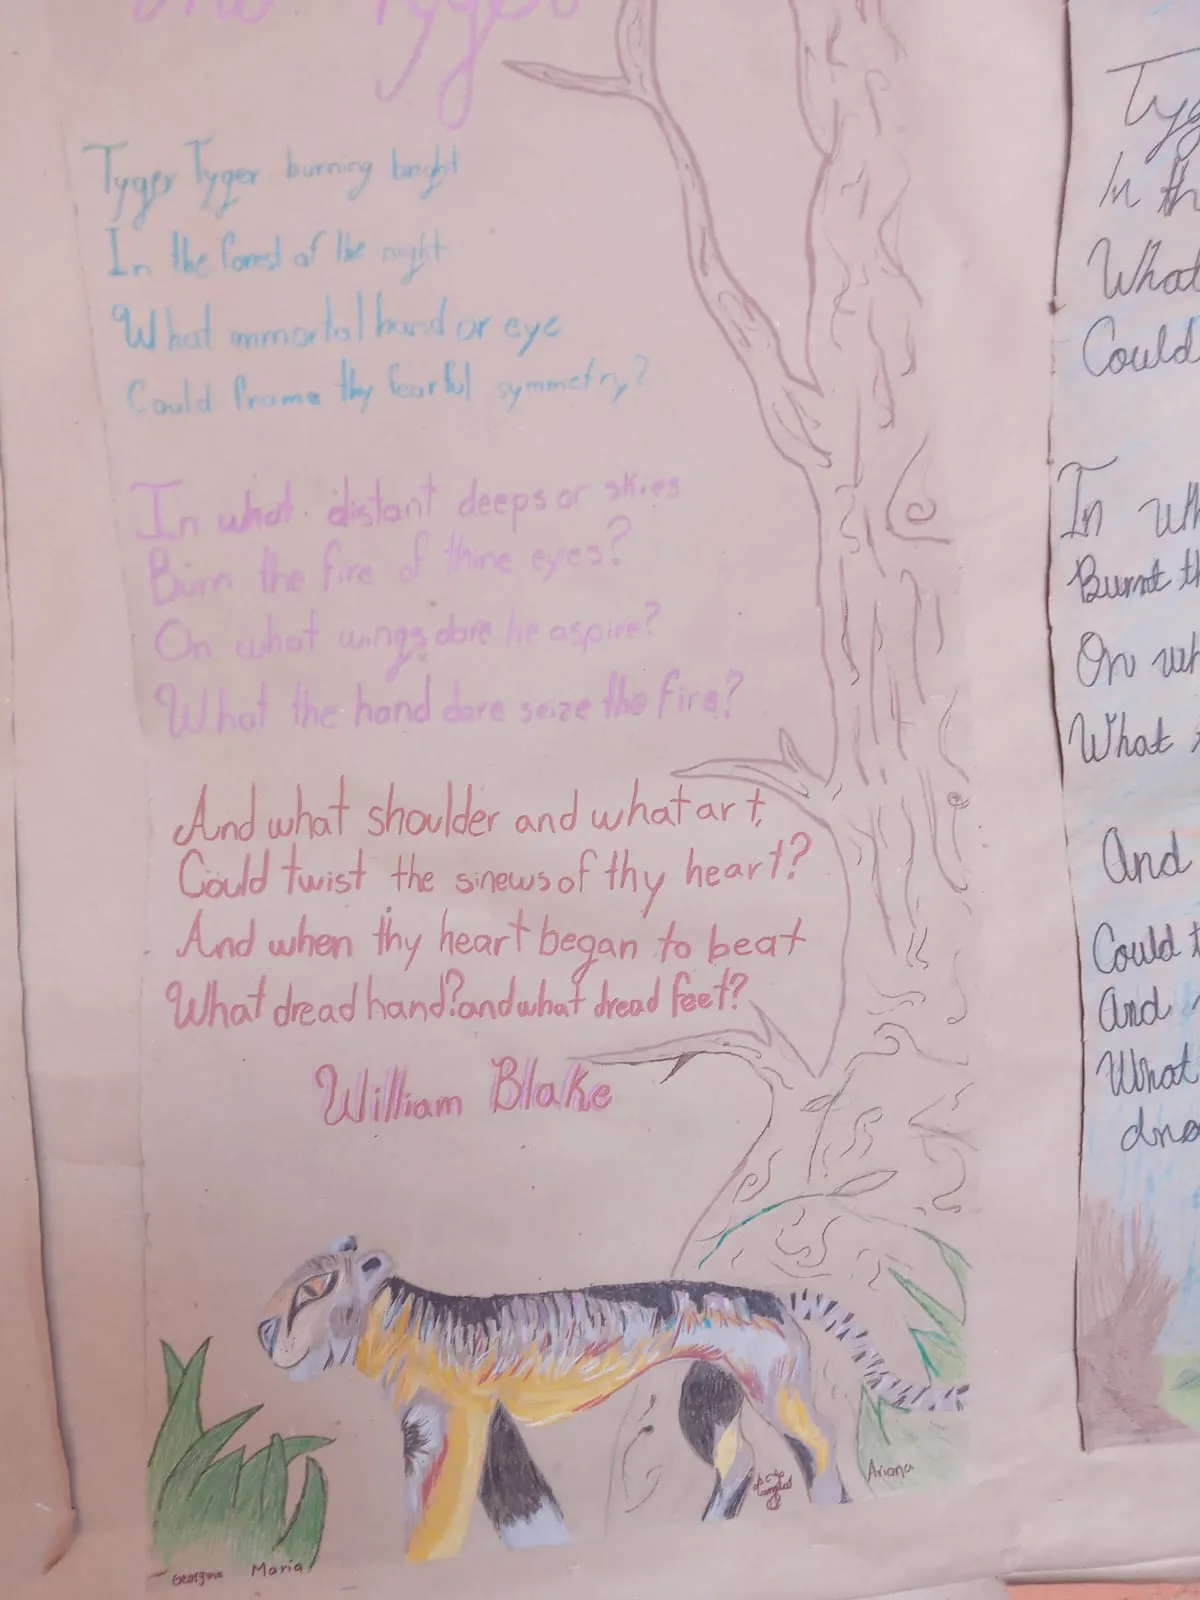 The Tyger
Tyger Tyger burning bright
In the forest of the night
What immortal hand or eye
Could frame thy fearful symmetry?
In what distant deeps or skies
Burn the fire of thine eyes?
On what wings dare he aspire?
What the hand dare seize the fire?
And what shoulder and what art,
Could twist the sinews of thy heart?
And when thy heart began to beat
What dread hand? and what dread feet?
William Blake
Ariana
Georgiana Maria
Tyg
In th
What
Could
In wh
Burnt th
On wh
What
And
Could t
And
What